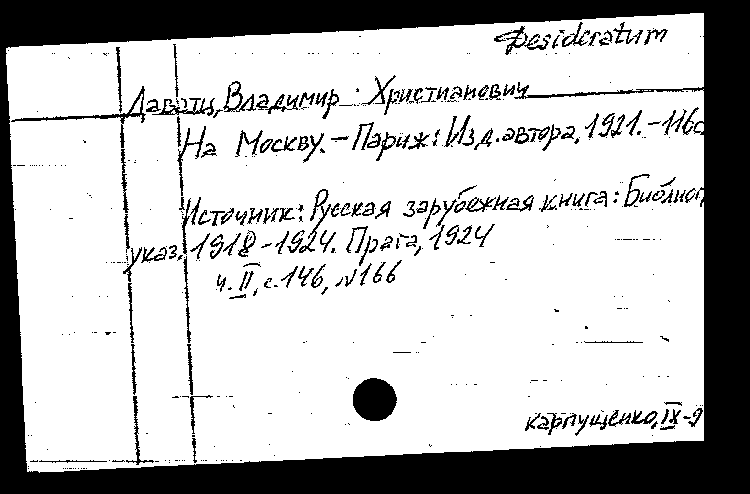 Desideratum
Даватц, Владимир Христианович
На Москву. – Париж: Изд. автора, 1921. – 116с
Источник: Русская зарубежная книга: Библиог
указ. 1918–1924. Прага, 1924
ч. II, с. 146, №166
Карпущенко, IX-9